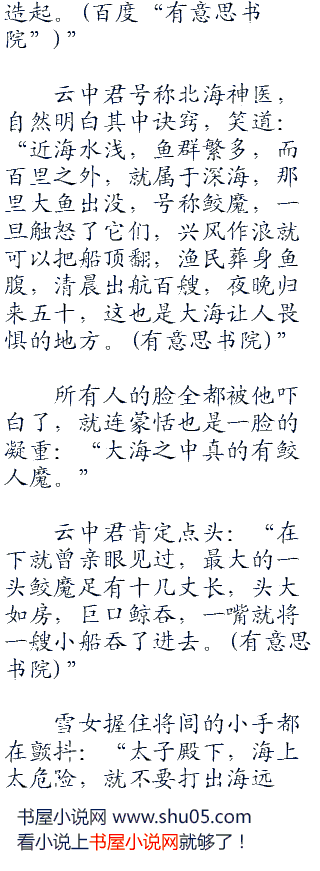 造起。(百度“有意思书
院”)”
云中君号称北海神医，
自然明白其中诀窍，笑道：
“近海水浅，鱼群繁多，而
百里之外，就属于深海，那
里大鱼出没，号称鲛魔，一
旦触怒了它们，兴风作浪就
可以把船顶翻，渔民葬身鱼
腹，清晨出航百艘，夜晚归
来五十，这也是大海让人畏
惧的地方。(有意思书院)”
所有人的脸全都被他吓
白了，就连蒙恬也是一脸的
凝重：“大海之中真的有鲛
人魔。”
云中君肯定点头：“在
下就曾亲眼见过，最大的一
头鲛魔足有十几丈长，头大
如房，巨口鲸吞，一嘴就将
一艘小船吞了进去。(有意思
书院)”
雪女握住将闾的小手都
在颤抖：“太子殿下，海上
太危险，就不要打出海远
书屋小说网 www.shu05.com
看小说上书屋小说网就够了！